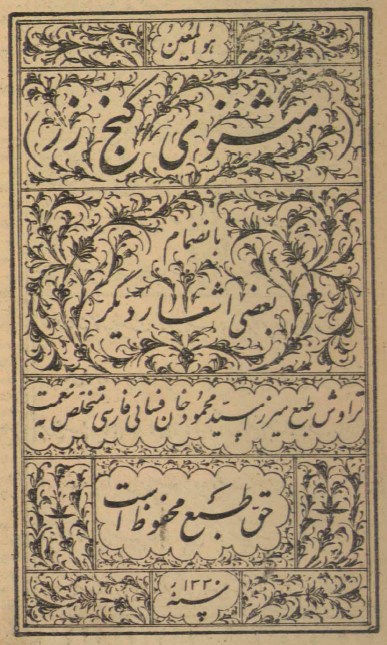 هو المعین
مثنوی گنج زر
بانضمام
بعضی اشعار دیگر
تراوش طبع میرزا سید محمود خان فسائی فارسی متخلص به نعمت
حق طبع محفوظ است
سنه ۱۳۳۰